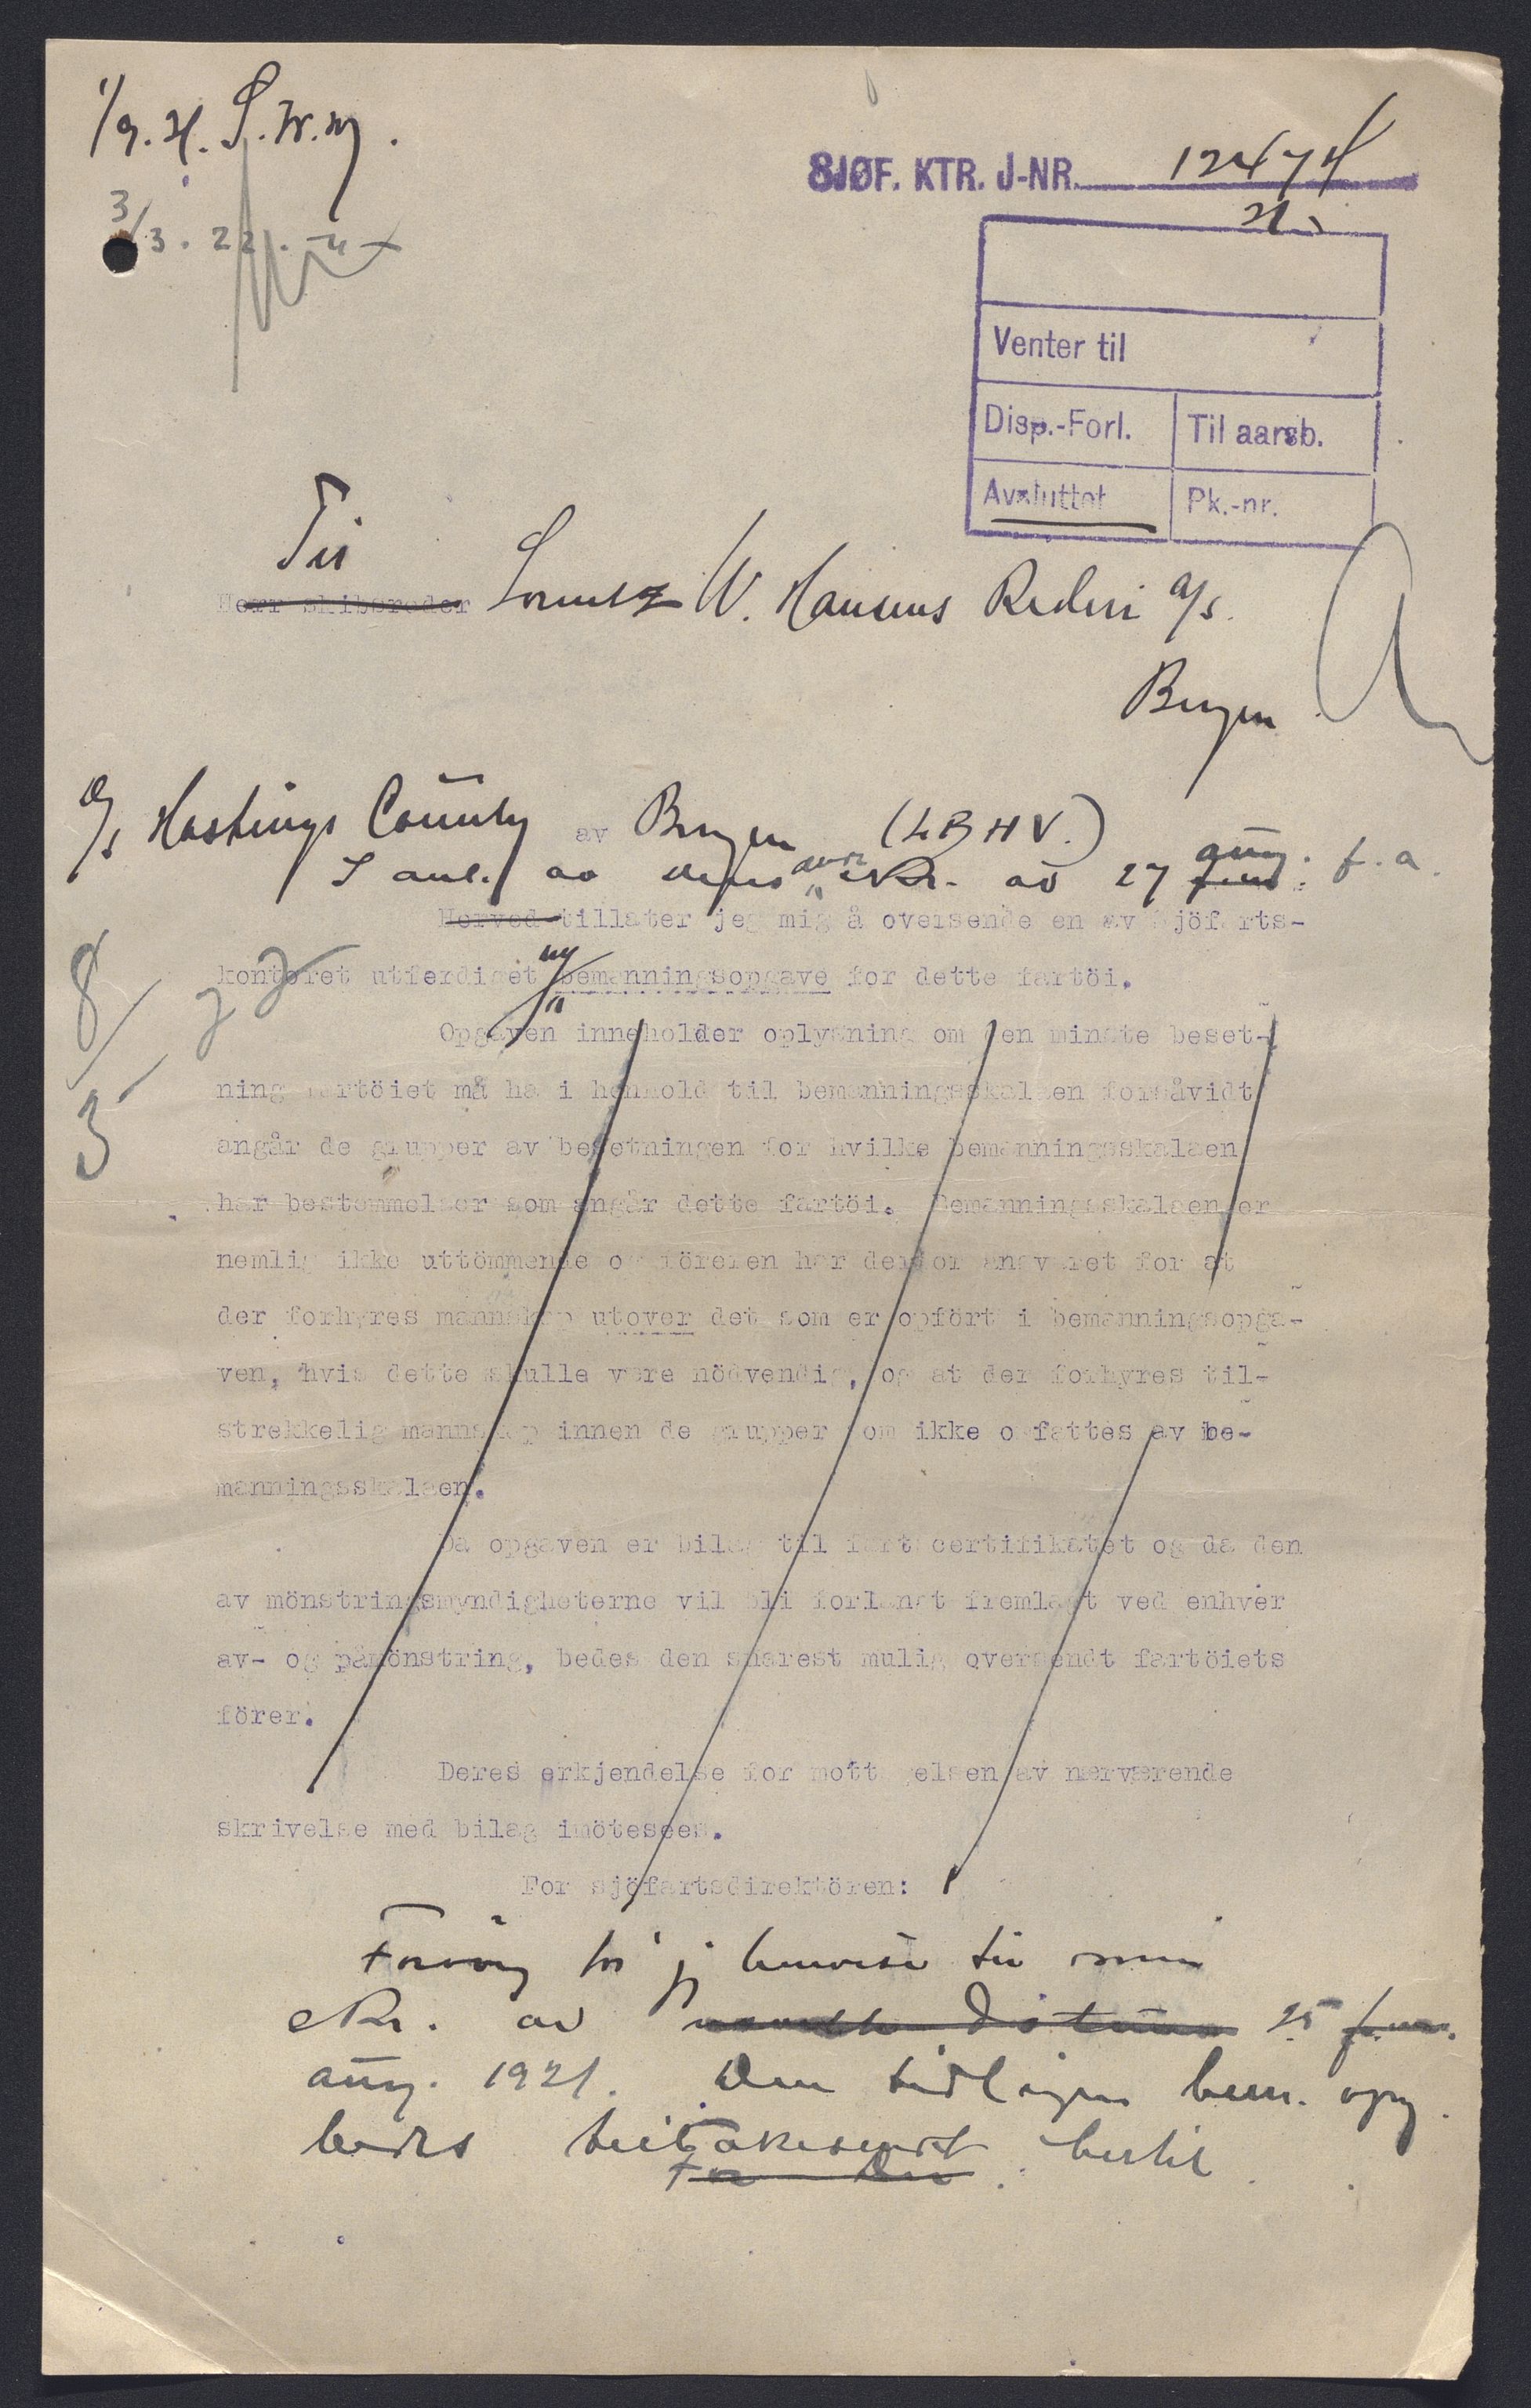 SJØF. KTR. J-NR. 12474
3/3. 22.
Venter til
Disp.-Forl. Til aarsb.
Avsluttet Pk.-nr.
Til
Herr skibsreder Lorentz W. Hansens Rederi A/S.
Bergen
D/S Hastings County av Bergen (LBHV.)
I anl. av deres skr. av 27 aug. f.a.
Herved tillater jeg mig å oversende en av Sjöfarts-
kontoret utferdiget ny bemanningsopgave for dette fartöi.
8/3 22
Opgaven inneholder oplysning om den minste beset-
ning fartöiet må ha i henhold til bemanningsskalaen forsåvidt
angår de grupper av besetningen for hvilke bemanningsskalaen
har bestemmelser som angår dette fartöi. Bemanningsskalaen er
nemlig ikke uttömmende og föreren har derfor ansvaret for at
der forhyres mannskap utover det som er opfört i bemanningsopga-
ven, hvis dette skulle være nödvendig, og at der forhyres til-
strekkelig mannskap innen de grupper som ikke omfattes av be-
manningsskalaen.
Da opgaven er bilag til fartscertifikatet og da den
av mönstringsmyndigheterne vil bli forlangt fremlagt ved enhver
av- og påmönstring, bedes den snarest mulig oversendt fartöiets
förer.
Deres erkjendelse for mottagelsen av nærværende
skrivelse med bilag imötesees.
For sjöfartsdirektören:
Forövrig får jeg henvise til min
skr. av samme datum 25 f.m.
aug. 1921. Den tidligere bem. opg.
bedes tilbakesendt hertil.
For Den